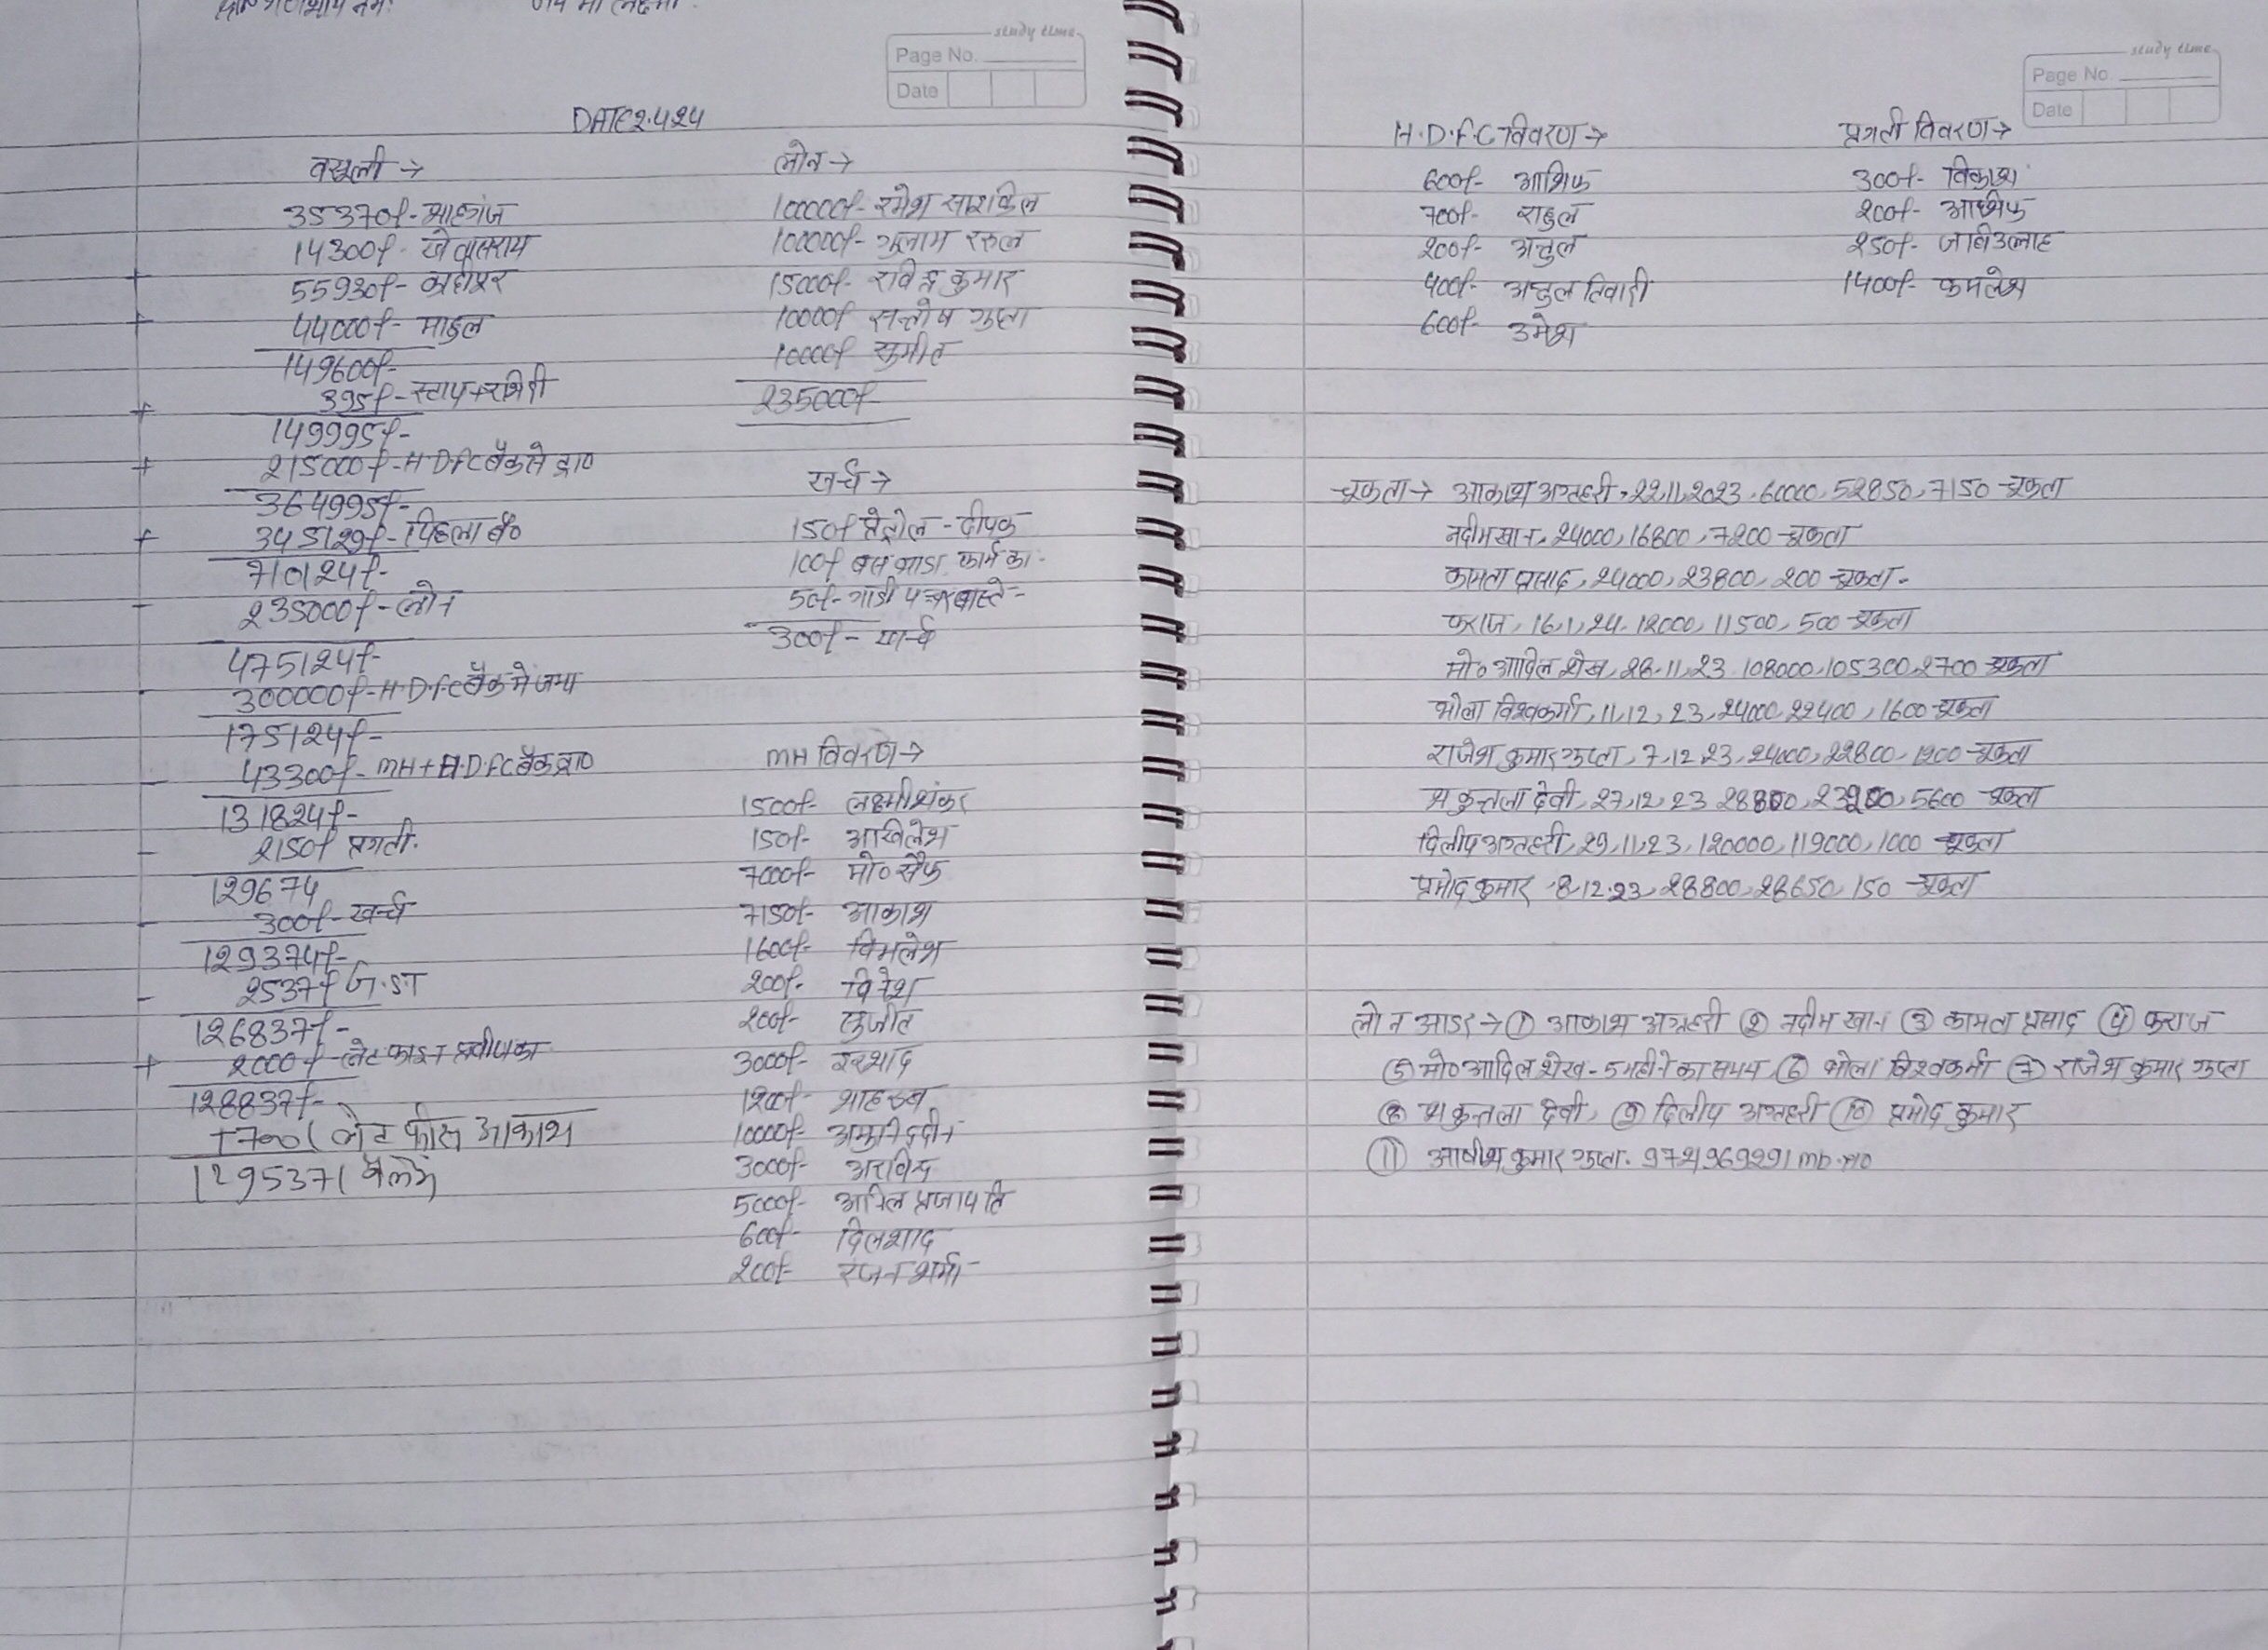 जय माँ लक्ष्मी
study time
Page No.
Date
DATE 2.4.24
वसूली →
35370/- शाहगंज
14300/- खेतासराय
+ 55930/-
+ 44000/- माहुल
149600/-
+ 395/- स्टाम्प+रसिदी
149995/-
+ 215000/- H.D.F.C बैंक से प्राप्त
364995/-
+ 345129/- पिछला बै०
710124/-
- 235000/- लोन
475124/-
- 300000/- H.D.F.C बैंक मे जमा
175124/-
- 43300/- MH + H.D.F.C बैंक
131824/-
- 2150/- प्रगती.
129674
- 300/- खर्च
129374/-
- 2537/- G.S.T
126837/-
+ 2000/- लेट फाइन
128837/-
+700/ लेट फीस आकाश
129537/ बैलेंस
लोन →
100000/- रमेश साइकिल
100000/- गुलाम रसूल
15000/- रविन्द्र कुमार
10000/- सन्तोष गुप्ता
10000/- सुमीत
235000/-
खर्च →
150/- पेट्रोल - दीपक
100/- बस भाडा फार्म का -
50/- गाडी पन्चर वास्ते -
300/- खर्च
MH विवरण →
1500/- लक्ष्मीशंकर
150/- अखिलेश
7000/- मो० सैफ
7150/- आकाश
1600/- विमलेश
200/-
200/- सुजीत
3000/- इरशाद
1200/- शाहरुब
10000/-
3000/- अरविन्द
5000/- अनिल प्रजापति
600/- दिलशाद
200/- रंजन शर्मा
study time
Page No.
Date
H.D.F.C विवरण →
600/- आशिफ
700/- राहुल
200/- अतुल
400/- अतुल तिवारी
600/- उमेश
प्रगती विवरण →
300/- विकाश
200/- आशिफ
250/- जाबिउल्लाह
1400/- कमलेश
चुकता → आकाश अग्रहरी, 22,11,2023, 60000, 52850, 7150 चुकता
नदीम खान, 24000, 16800, 7200 चुकता
कामता प्रसाद, 24000, 23800, 200 चुकता -
फराज, 16,1,24, 12000, 11500, 500 चुकता
मो० आदिल शेख, 28.11.23, 108000, 105300, 2700 चुकता
भोला विश्वकर्मा, 11,12,23, 24000, 22400, 1600 चुकता
राजेश कुमार गुप्ता, 7,12,23, 24000, 22800, 1200 चुकता
शकुन्तला देवी, 27,12,23 28800, 23200, 5600 चुकता
दिलीप अग्रहरी, 29,11,23, 120000, 119000, 1000 चुकता
प्रमोद कुमार 8.12.23, 28800, 28650, 150 चुकता
लोन आडर → ① आकाश अग्रहरी ② नदीम खान ③ कामता प्रसाद ④ फराज
⑤ मो० आदिल शेख - 5 महीने का समय ⑥ भोला विश्वकर्मा ⑦ राजेश कुमार गुप्ता
⑧ शकुन्तला देवी, ⑨ दिलीप अग्रहरी ⑩ प्रमोद कुमार
⑪ आशीश कुमार गुप्ता. 9721969291 mb.no